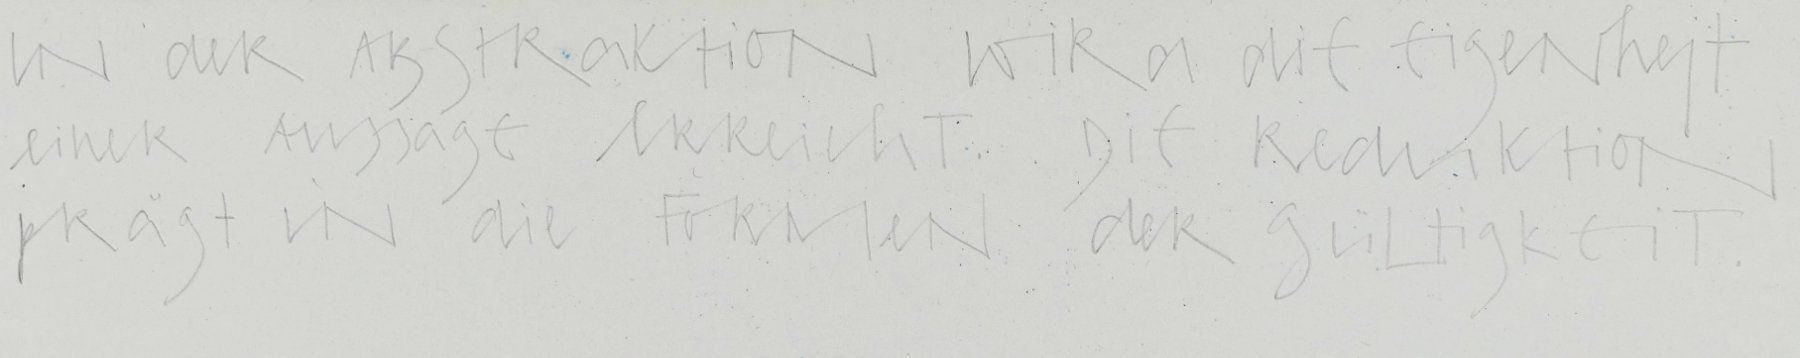 IN der ABSTRaktiON wird die EigeNheit
einer AussagE erreichT. DiE ReduktioN
prägt iN die FormeN der gülTigkEiT.